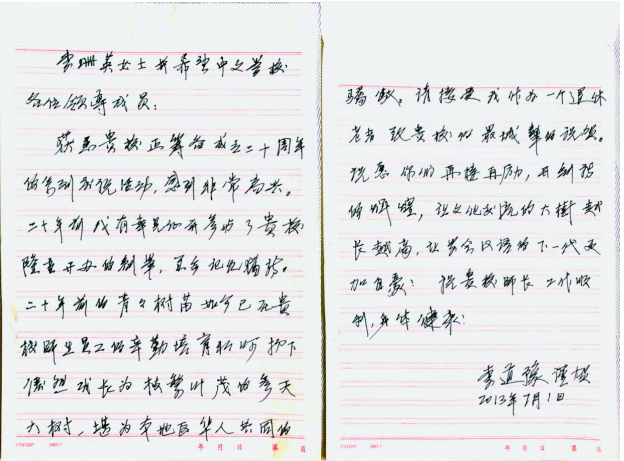 李珊英女士并希望中文学校
各位领导成员：
获悉贵校正筹备成立二十周年
的特刊和庆祝活动，感到非常高兴。
二十年前我有幸见证并参与了贵校
隆重开办的创举，至今记忆犹新。
二十年前的青青树苗如今已在贵
校师生员工的辛勤培育和呵护下
成长为枝繁叶茂的参天
大树，堪为本地区华人共同的
骄傲。请接受我作为一个退休
老者致贵校的最诚挚的祝贺。
祝愿你们再接再励，再创新
的辉煌，让文化交流的大树越
长越高，让学会汉语的下一代更
加自豪！祝贵校师长工作顺
利，身体健康！
李道豫 谨贺
2013年7月1日
年 月 日 第 页
年 月 日 第 页